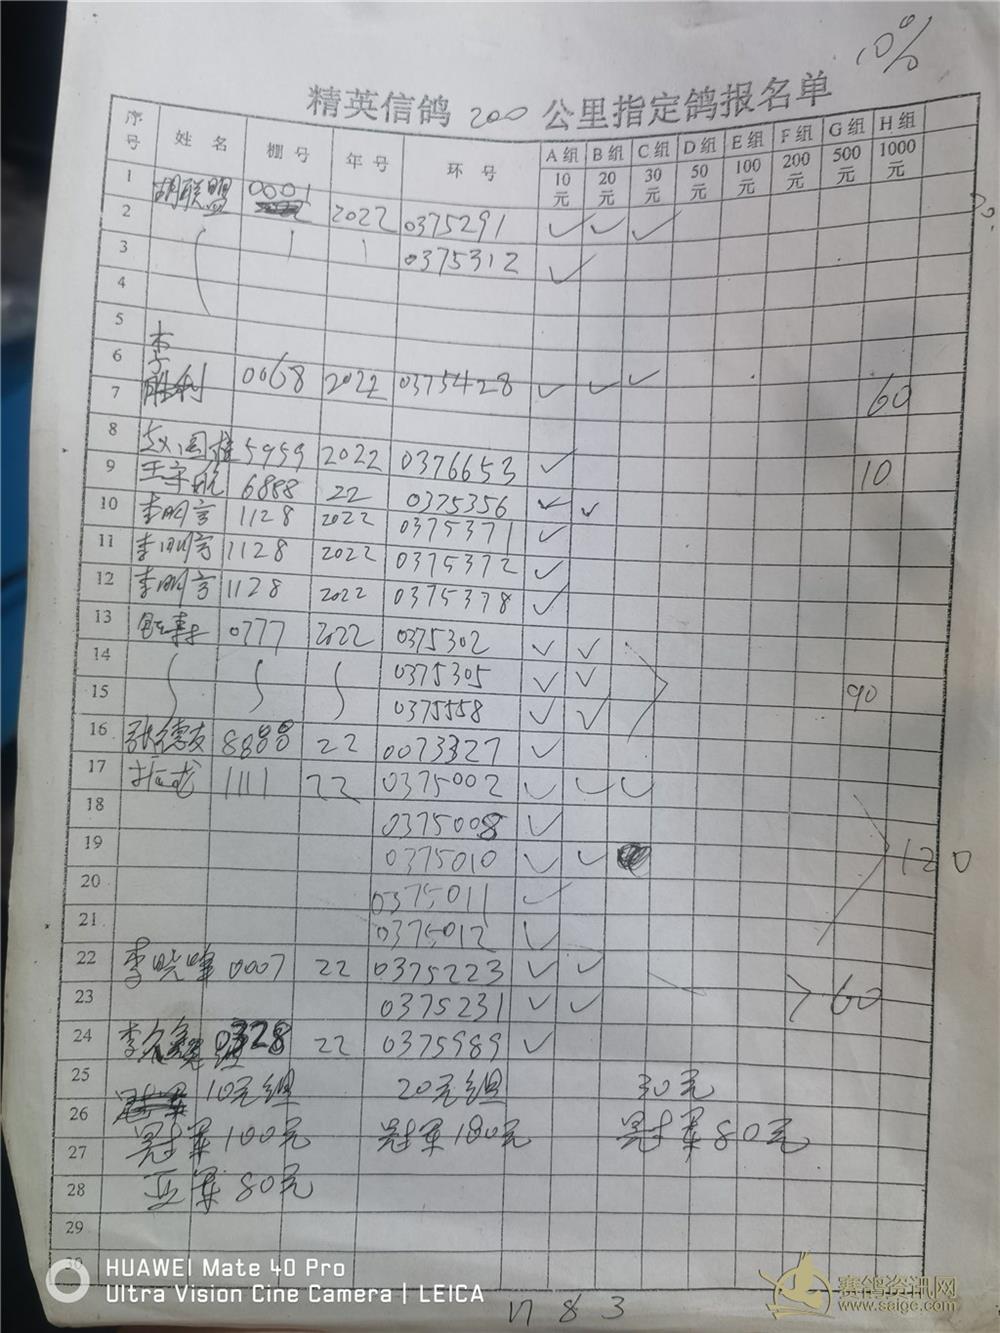 10%
精英信鸽 200 公里指定鸽报名单
序号 姓名 棚号 年号 环号 A组 B组 C组 D组 E组 F组 G组 H组
10元 20元 30元 50元 100元 200元 500元 1000元
1 胡联盟 0001
2 2022 0375291 ✓ ✓ ✓
3 0375312 ✓
4
5
6 0068 2022 0375428 ✓ ✓ ✓
7 胜利 60
8 5959 2022 0376653 ✓ 10
9 王宇航 6888 22 0375356 ✓ ✓
10 李明言 1128 2022 0375371 ✓
11 李明言 1128 2022 0375372 ✓
12 李明言 1128 2022 0375378 ✓
13 0777 2022 0375302 ✓ ✓
14 0375305 ✓ ✓
15 0375558 ✓ ✓ 90
16 张德友 8888 22 0073327 ✓
17 1111 22 0375002 ✓ ✓ ✓
18 0375008 ✓
19 0375010 ✓ ✓ 120
20 0375011 ✓
21 0375012 ✓
22 李晓峰 0007 22 0375223 ✓ ✓
23 0375231 ✓ ✓ 60
24 0328 22 0375989 ✓
25 10元组 20元组 30元
26
27 冠军100元 冠军180元 冠军80元
28 亚军80元
29
30
HUAWEI Mate 40 Pro
Ultra Vision Cine Camera | LEICA
1783
赛鸽资讯网
www.saige.com